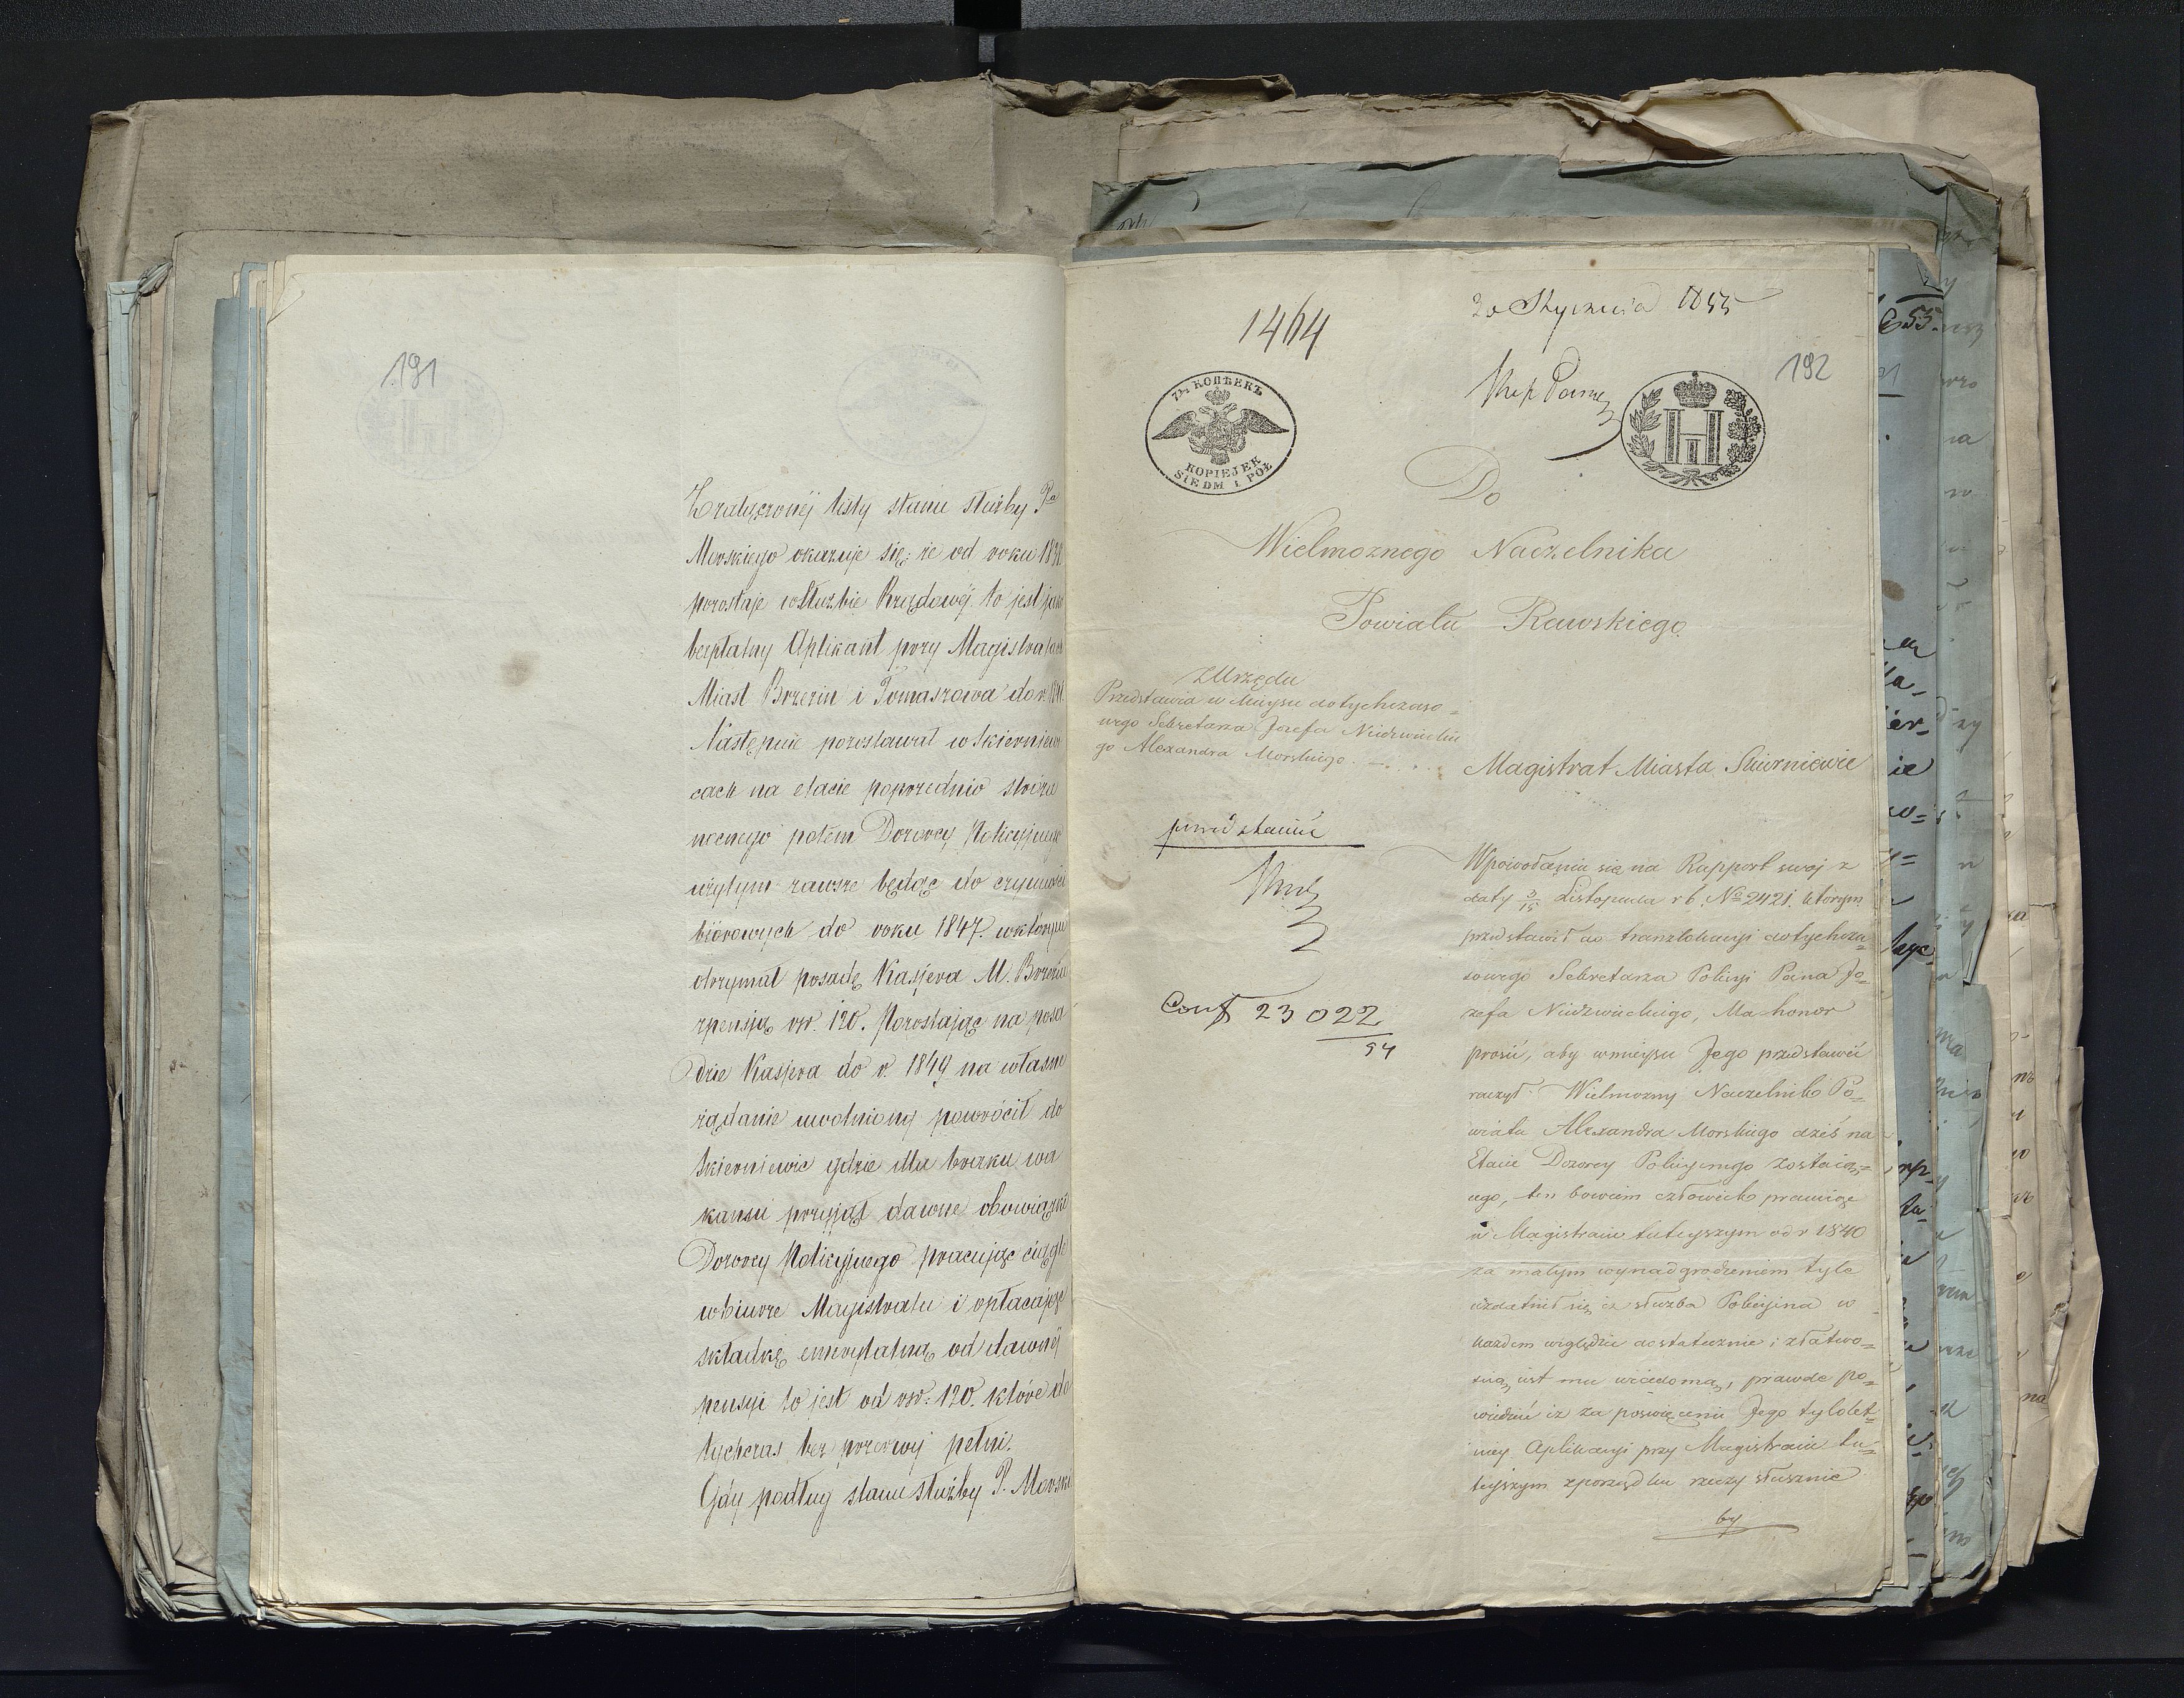 191
Z załączonej listy stanu służby Pa
Morskiego okazuje się: że od roku 1838
pozostaje w Służbie Rządowej to jest jako
bezpłatny Aplikant przy Magistratach
Miast Brzezin i Tomaszowa do r. 1841.
Następnie pozostawał w Skierniewi
cach na etacie poprzednio stróża
nocnego potem Dozorcy Policyjnego
użytym zawsze będąc do czynności
biórowych do roku 1847. w którym
otrzymał posadę Kasjera M. Brzezin
z pensją rsr. 120. Pozostając na posa
dzie Kasjera do r. 1849 na własne
żądanie uwolniony powrócił do
Skierniewic gdzie dla braku wa
kansu przyjął dawne obowiązki
Dozorcy Policyjnego pracując ciągle
w biurze Magistratu i opłacając
składkę emerytalną od dawnej
pensyi to jest od rsr: 120. które do
tychczas bez przerwy pełni.
Gdy podług stanu służby P. Morski
1464
20 Stycznia 1855
192
7½ КОПѢЕКЪ
KOPIEJEK
SIEDM I PÓŁ
Do
Wielmoznego Naczelnika
Powiatu Rawskiego
z Urzędu
Przedstawia w Miejscu dotychczaso=
wego Sekretarza Jozefa Niedzwieckie
go Alexandra Morskiego
Magistrat Miasta Skierniewic
przedstawić
Conf 23022
54
W powołaniu się na Rapport swój z
daty 3/15 Listopada r b. No 2421. którym
przedstawił do translokacyi dotychcza=
sowego Sekretarza Policyi Pana Jo=
zefa Niedzwieckiego, Ma honor
prosić, aby w miejscu Jego przedstawić
raczył Wielmozny Naczelnik Po=
wiatu Alexandra Morskiego dziś na
Etacie Dozorcy Policyjnego zostaią=
cego, ten bowiem człowiek pracuiąc
w Magistracie tuteyszym od r 1840
za małym wynadgrodzeniem tyle
uzdatnił się iż służba Policyjna w
każdem względzie dostatecznie i z łatwo=
ścią iest mu wiadomą, prawdę po=
wiedzieć iż za poświęcenie Jego tylolet=
niey Aplikacyi przy Magistracie tu=
teyszym z porządku rzeczy słusznie
by